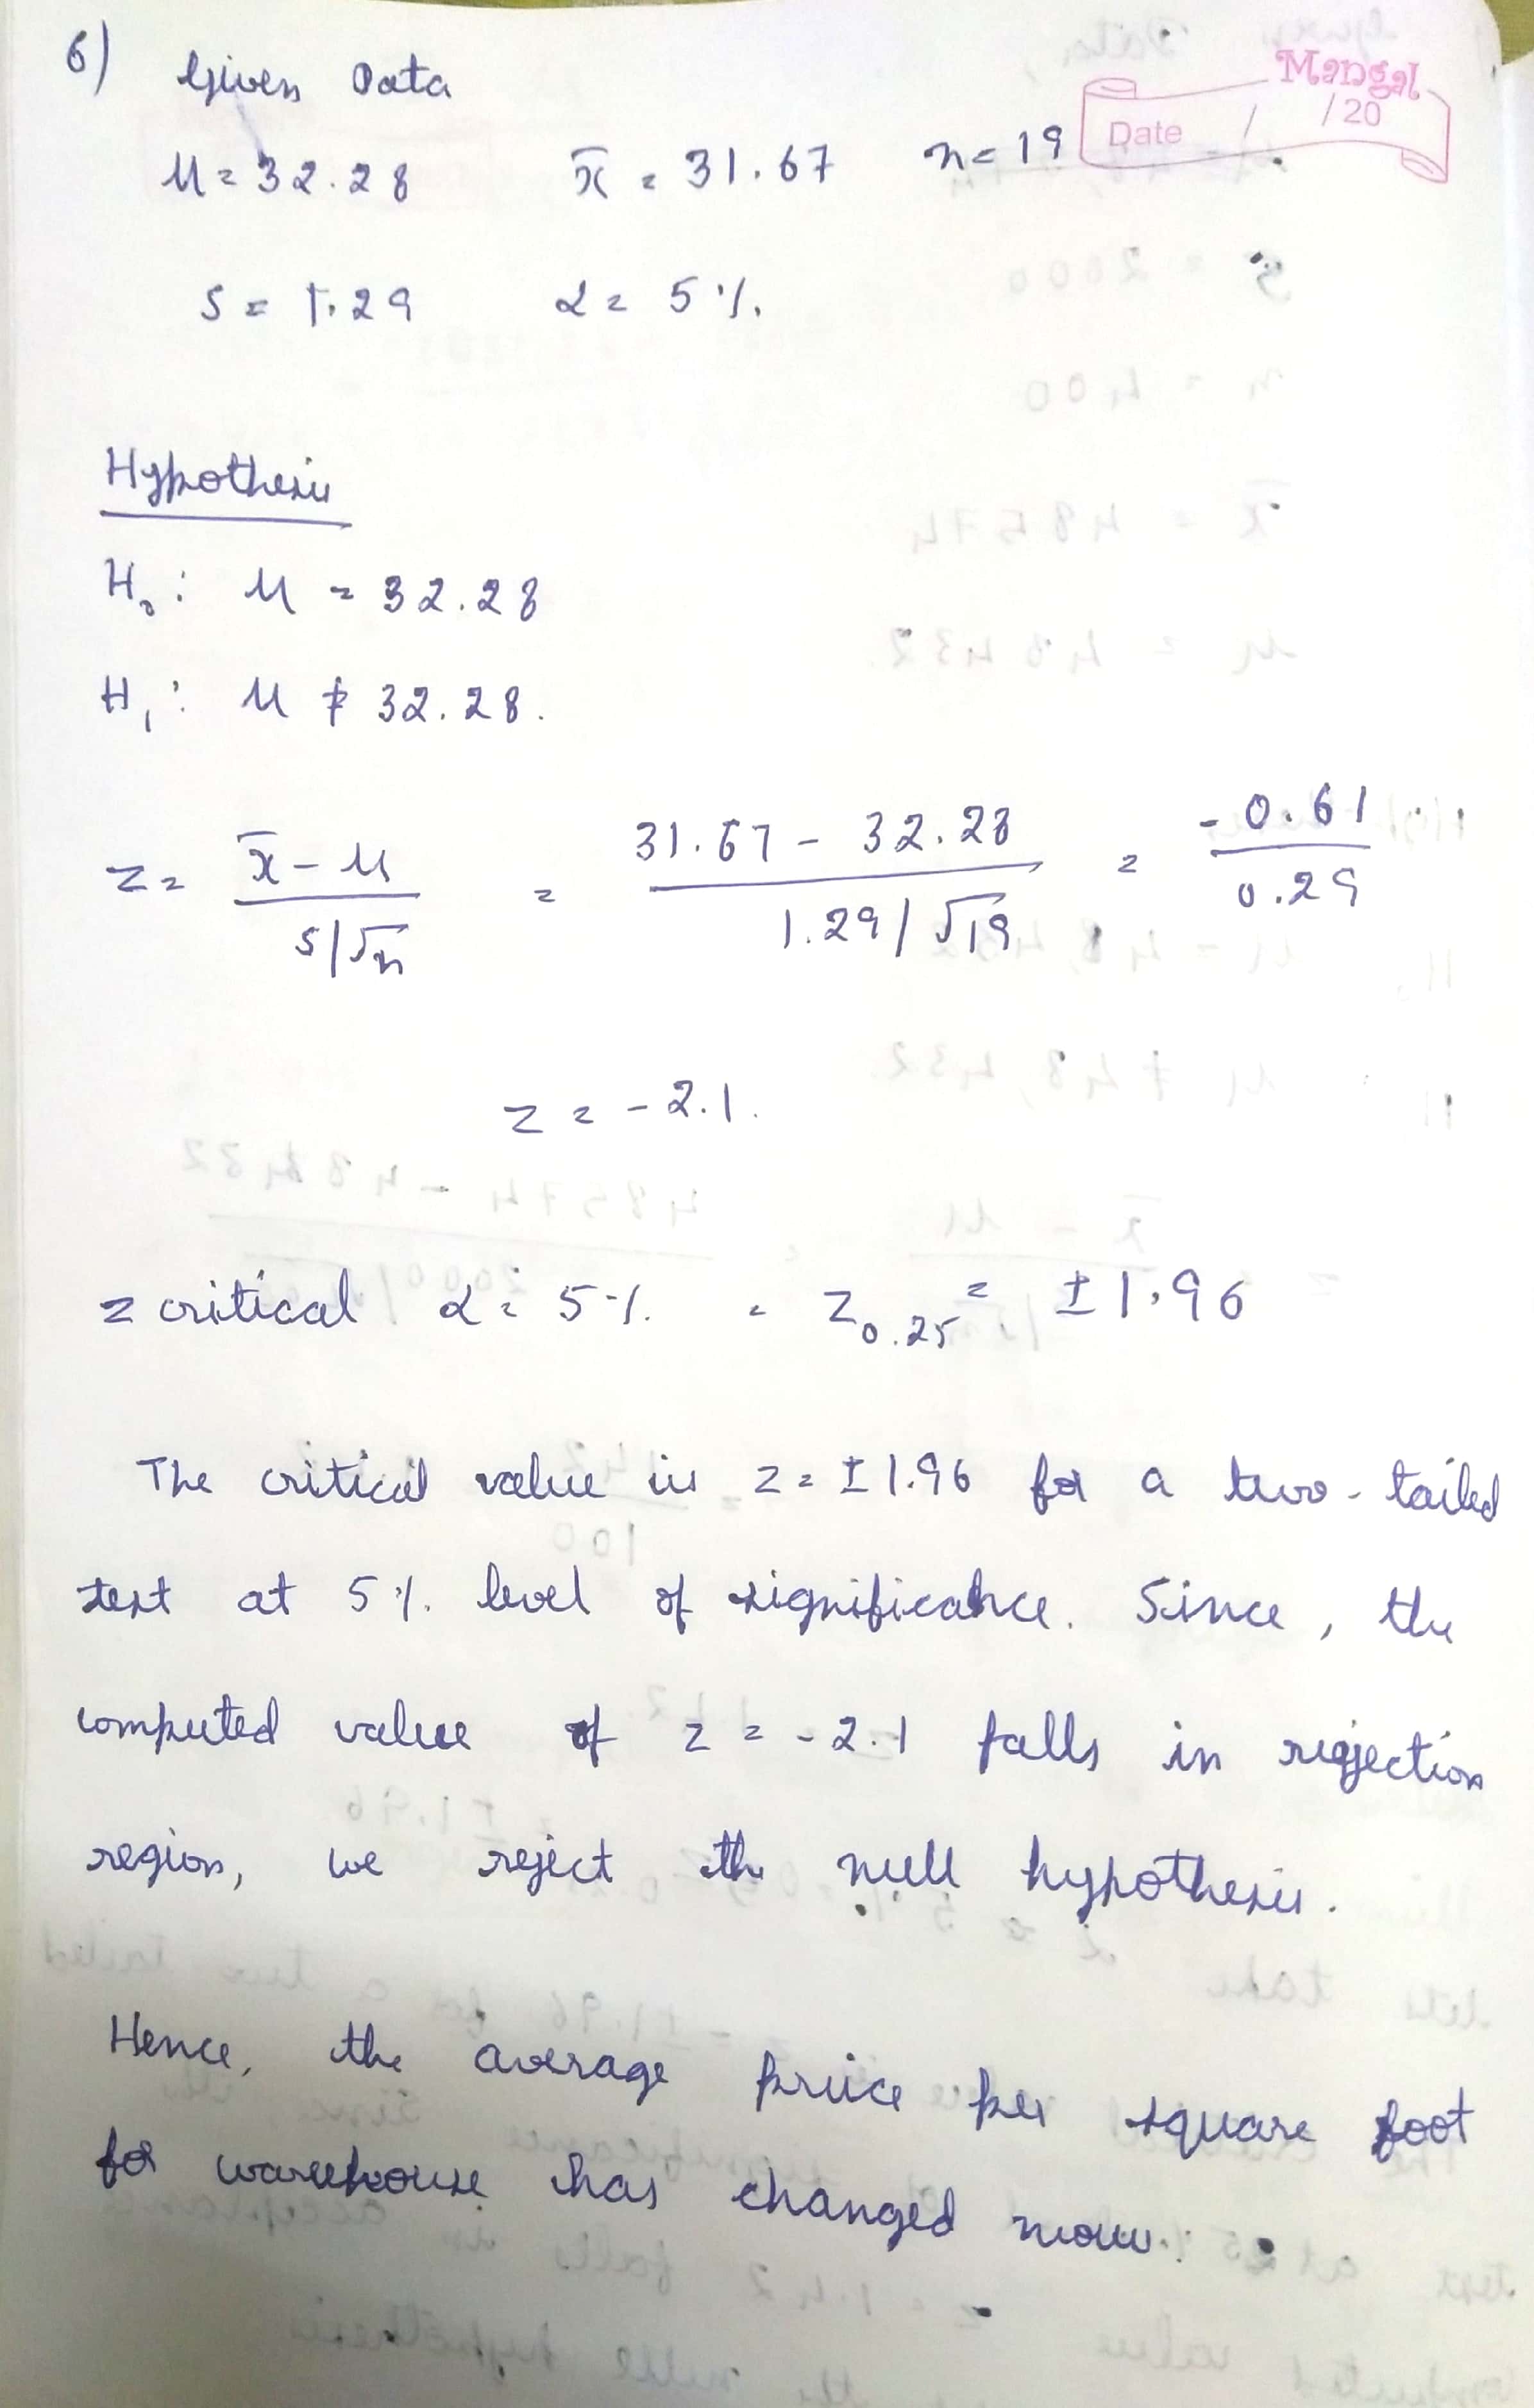 6) Given Data
Mangal
Date / / 20
μ = 32.28 x̄ = 31.67 n = 19
s = 1.29 α = 5%.
Hypothesis
H₀ : μ = 32.28
H₁ : μ ≠ 32.28.
z = (x̄ - μ) / (s/√n) = (31.67 - 32.28) / (1.29/√19) = -0.61 / 0.29
z = -2.1.
z critical α = 5%. = Z₀.₂₅ = ±1.96
The critical value is z = ±1.96 for a two-tailed
test at 5%. level of significance. Since, the
computed value of z = -2.1 falls in rejection
region, we reject the null hypothesis.
Hence, the average price per square foot
for warehouse has changed now.